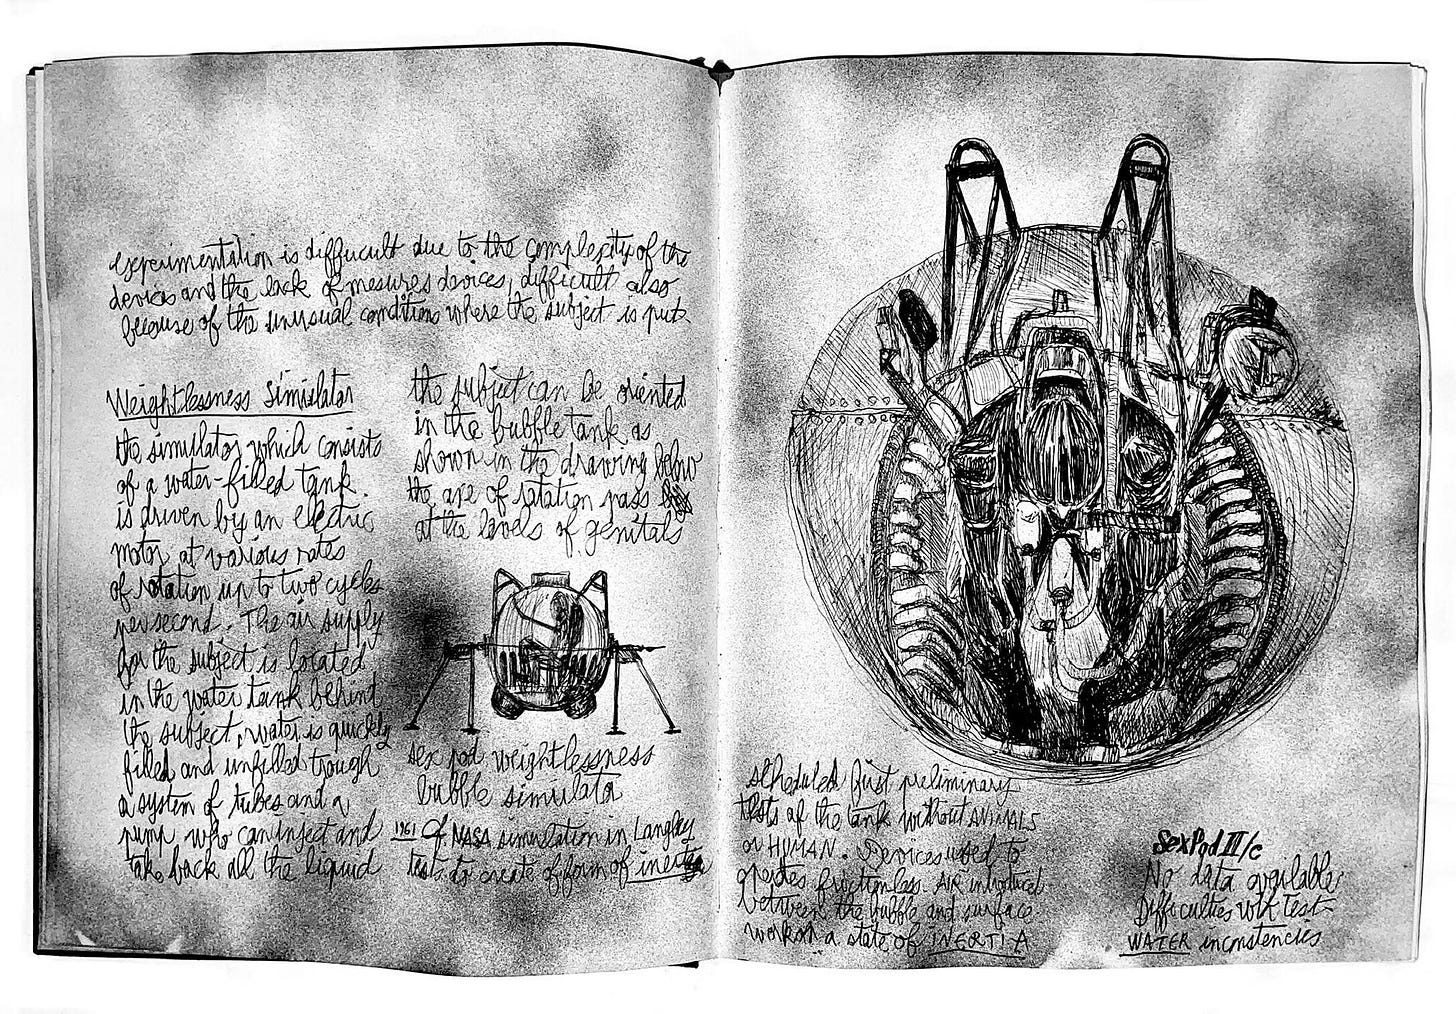 experimentation is difficult due to the complexity of the
devices and the lack of mesures devices, difficult also
because of the unusual conditions where the subject is put.
Weightlessness Simulator
the simulator which consists
of a water-filled tank.
is driven by an electric
motor at various rates
of rotation up to two cycles
per second. The air supply
for the subject is located
in the water tank behint
the subject, water is quickly
filled and unfilled trough
a system of tubes and a
pump who can inject and
take back all the liquid
the subject can be oriented
in the bubble tank as
shown in the drawing below
the axe of rotation pass
at the levels of genitals
sex pod weightlessness
bubble simulator
1961 Cf NASA simulation in Langley
tests to create of form of inertia
scheduled first preliminary
tests of the tank without ANIMALS
or HUMAN. Devices used to
operates frictionless. AIR introduced
between the bubble and surface
work on a state of INERTIA
SexPod III/c
No data available
Difficulties with test
WATER inconstencies